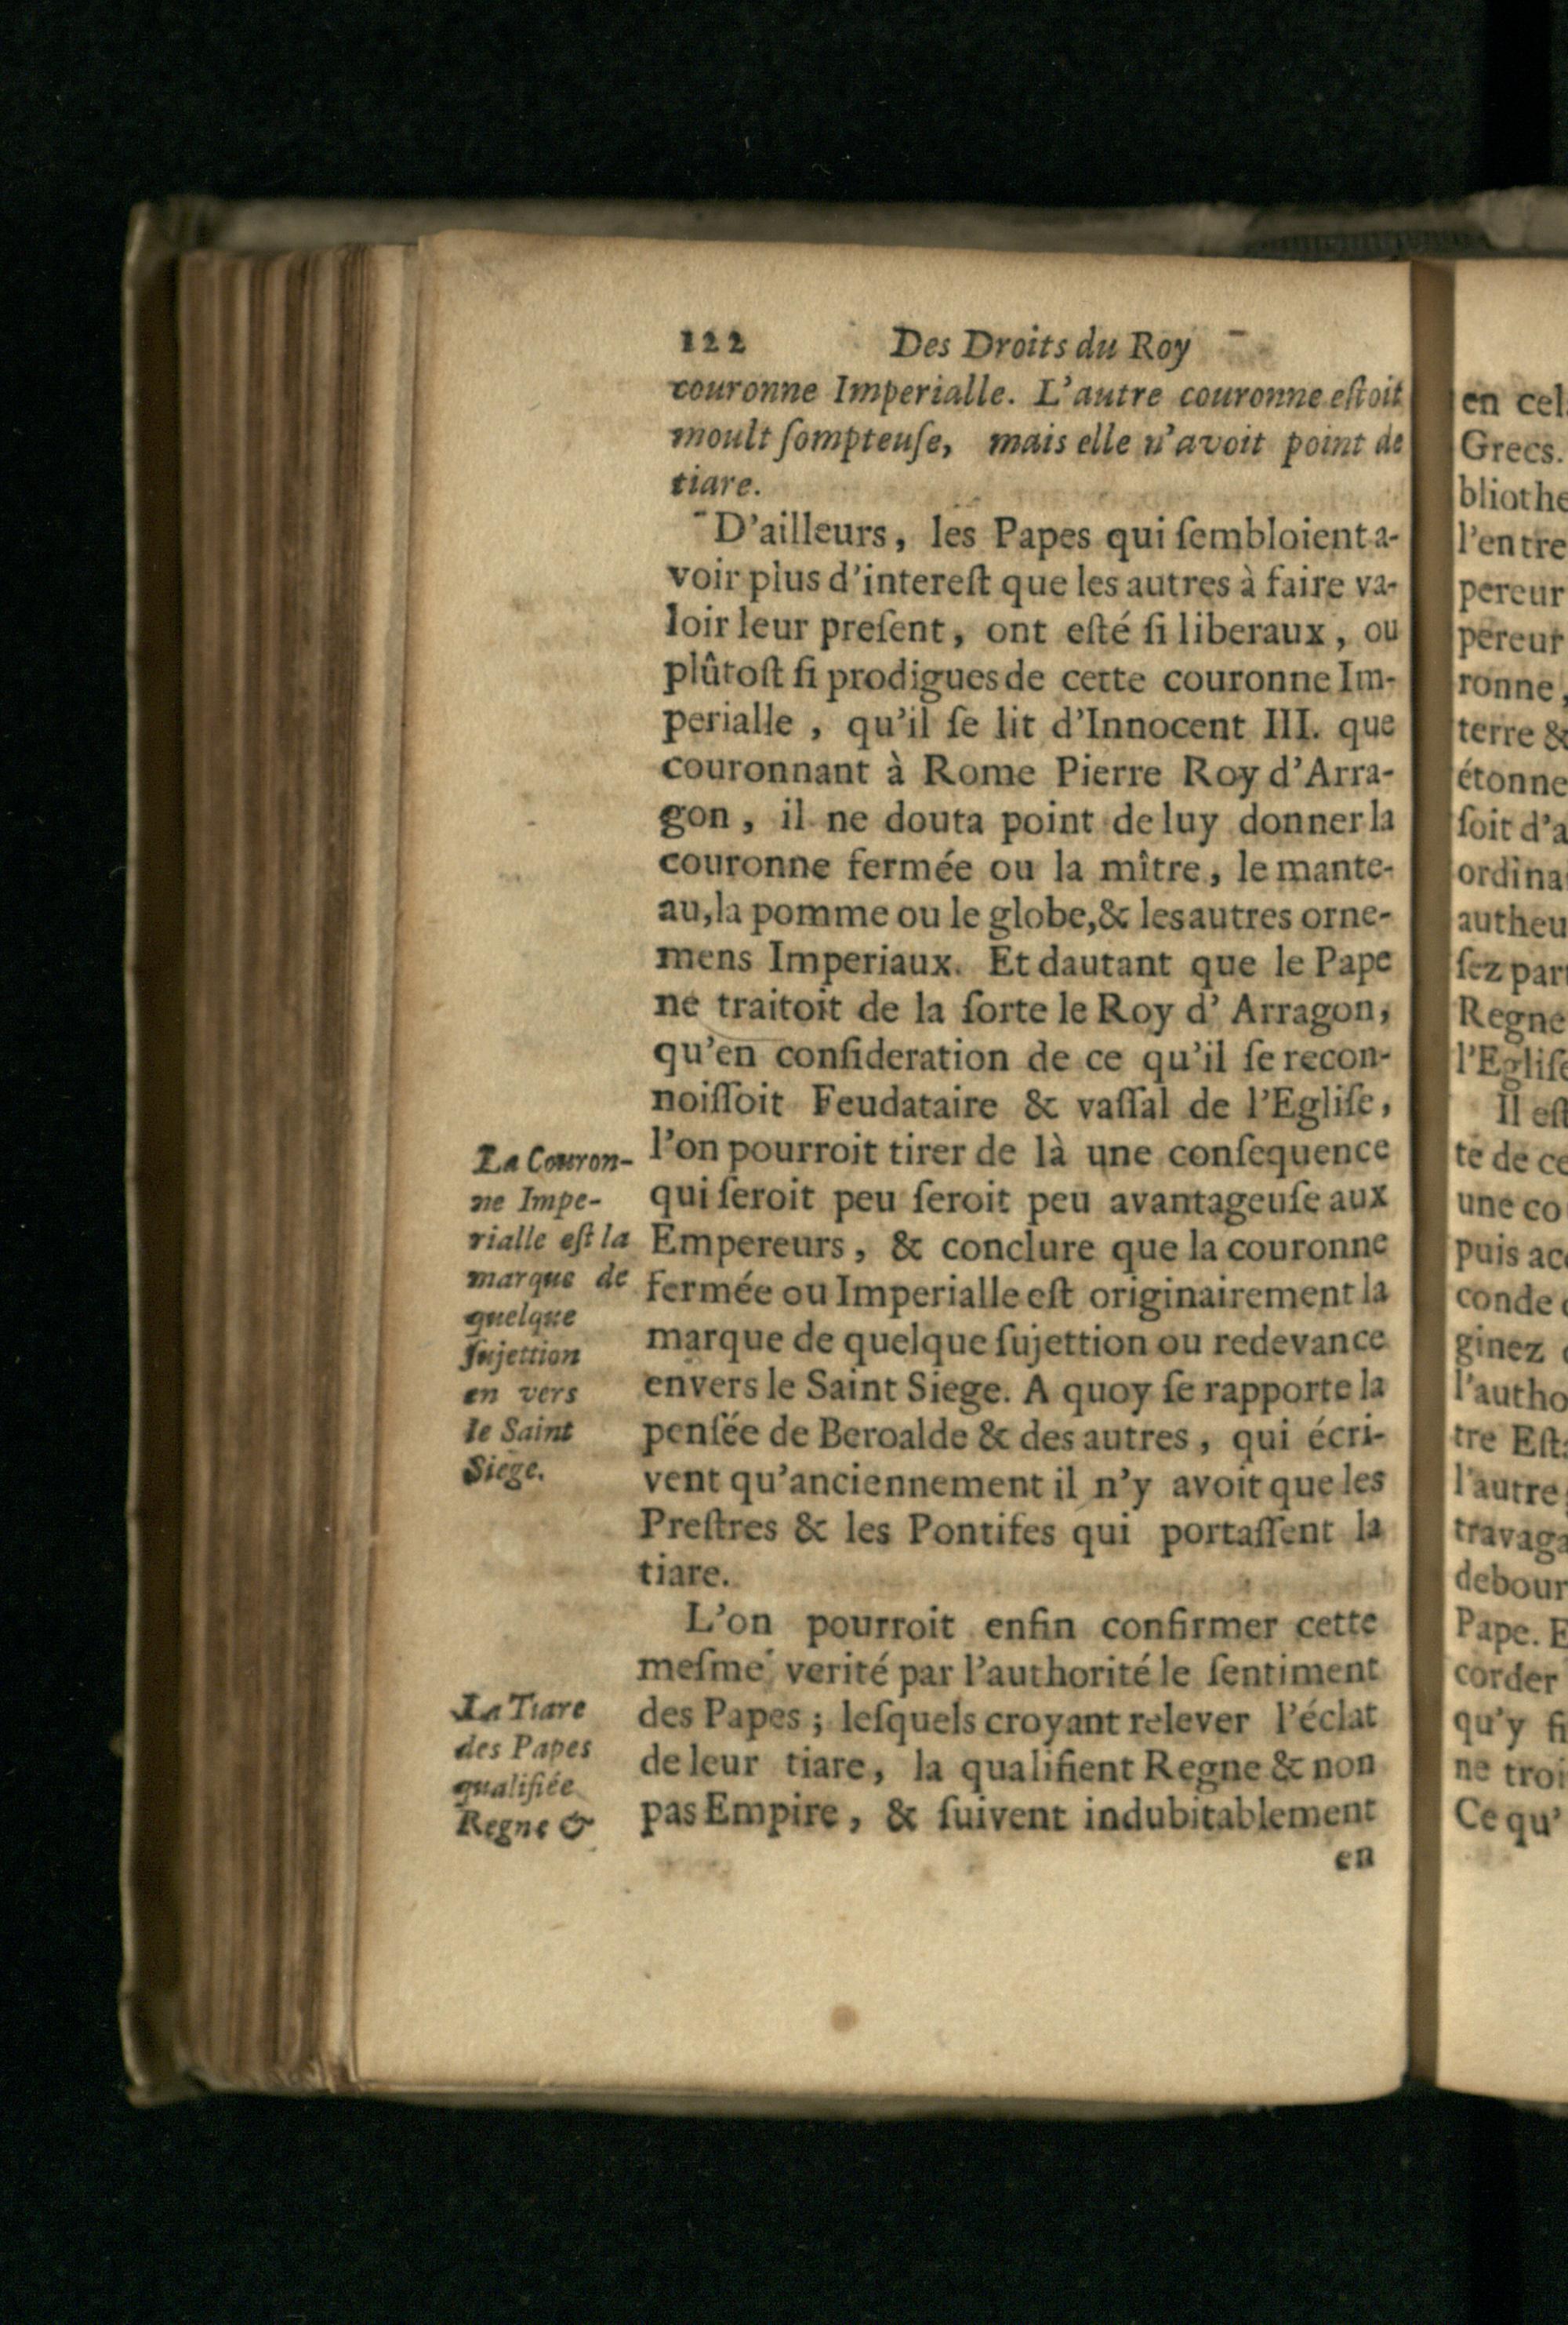 122 Des Droits du Roy
couronne Imperialle. L'autre couronne eſtoit
moult ſompteuſe, mais elle n'avoit point de
tiare.
D'ailleurs, les Papes qui ſembloient a-
voir plus d'intereſt que les autres à faire va-
loir leur preſent, ont eſté ſi liberaux, ou
plûtoſt ſi prodigues de cette couronne Im-
perialle, qu'il ſe lit d'Innocent III. que
couronnant à Rome Pierre Roy d'Arra-
gon, il ne douta point de luy donner la
couronne fermée ou la mître, le mante-
au, la pomme ou le globe, & les autres orne-
mens Imperiaux. Et dautant que le Pape
ne traitoit de la ſorte le Roy d' Arragon,
qu'en conſideration de ce qu'il ſe recon-
noiſſoit Feudataire & vaſſal de l'Egliſe,
l'on pourroit tirer de là une conſequence
qui ſeroit peu ſeroit peu avantageuſe aux
Empereurs, & conclure que la couronne
fermée ou Imperialle eſt originairement la
marque de quelque ſujettion ou redevance
envers le Saint Siege. A quoy ſe rapporte la
penſée de Beroalde & des autres, qui écri-
vent qu'anciennement il n'y avoit que les
Preſtres & les Pontifes qui portaſſent la
tiare.
L'on pourroit enfin confirmer cette
meſme verité par l'authorité le ſentiment
des Papes; leſquels croyant relever l'éclat
de leur tiare, la qualifient Regne & non
pas Empire, & ſuivent indubitablement
en
La Couron-
ne Impe-
rialle eſt la
marque de
quelque
ſujettion
en vers
le Saint
Siege.
La Tiare
des Papes
qualifiée
Regne &
en cel
Grecs.
bliothe
l'entre
pereur
pereur
ronne,
terre &
étonne
ſoit d'a
ordina
autheu
ſez par
Regne
l'Egliſe
Il eſt
te de ce
une co
puis ac
conde
ginez
l'autho
tre Eſt
l'autre
travaga
debour
Pape. E
corder
qu'y fi
ne troi
Ce qu'